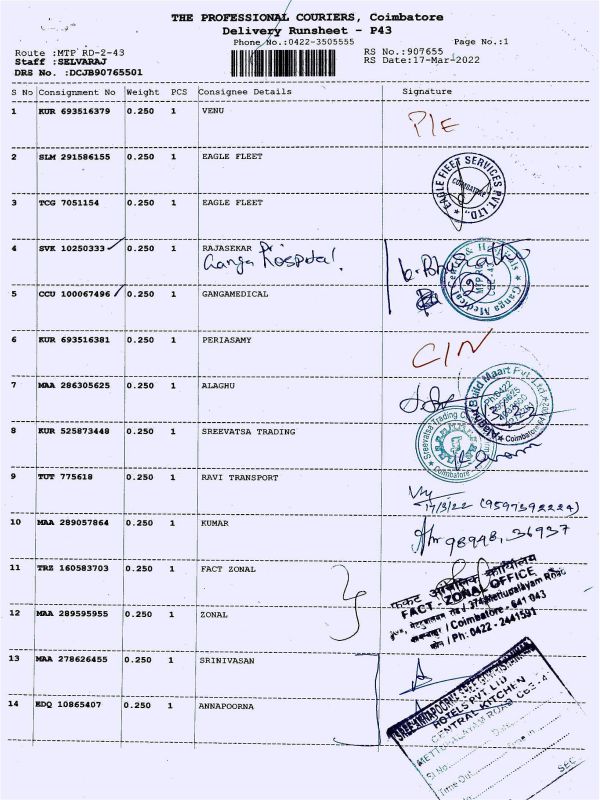 THE PROFESSIONAL COURIERS, Coimbatore
Delivery Runsheet - P43
Phone No.:0422-3505555 Page No.:1
Route :MTP RD-2-43 RS No.:907655
Staff :SELVARAJ RS Date:17-Mar-2022
DRS No. :DCJB90765501
S No Consignment No Weight PCS Consignee Details Signature
1 KUR 693516379 0.250 1 VENU P/E
2 SLM 291586155 0.250 1 EAGLE FLEET
EAGLE FLEET SERVICES PVT. LTD., COIMBATORE
3 TCG 7051154 0.250 1 EAGLE FLEET
4 SVK 10250333 0.250 1 RAJASEKAR Dr
Ganga Hospital.
Ganga Medical Centre & Hospitals
MTP RD
5 CCU 100067496 0.250 1 GANGAMEDICAL
6 KUR 693516381 0.250 1 PERIASAMY C/N
7 MAA 286305625 0.250 1 ALAGHU
Build Maart Pvt. Ltd.
Coimbatore
8 KUR 525873448 0.250 1 SREEVATSA TRADING
Sreevatsa Trading
Coimbatore
9 TUT 775618 0.250 1 RAVI TRANSPORT
17/3/22 (9597592224)
10 MAA 289057864 0.250 1 KUMAR 98948,36937
11 TRZ 160583703 0.250 1 FACT ZONAL
FACT - ZONAL OFFICE
/ Coimbatore - 641 043
/ Ph: 0422 - 2441591
12 MAA 289595955 0.250 1 ZONAL
13 MAA 278626455 0.250 1 SRINIVASAN
14 EDQ 10865407 0.250 1 ANNAPOORNA
HOTELS PVT. LTD
CENTRAL KITCHEN
METTUPALAYAM ROAD
Sl No. Date
Time Out
SEC